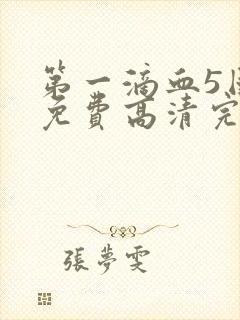 第一滴血5国
免費高清完
張夢雯